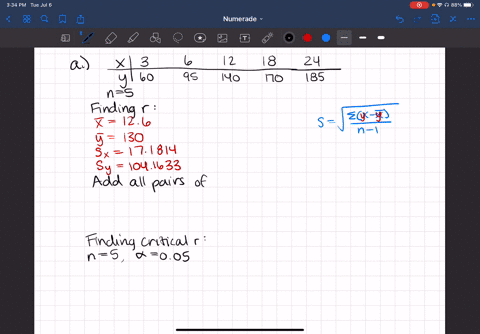 3:34 PM Tue Jul 6
88%
Numerade
a.)
x 3 6 12 18 24
y 60 95 140 170 185
n=5
Finding r:
x̅ = 12.6
y̅ = 130
Sx = 17.1814
Sy = 104.1633
Add all pairs of
S = √(Σ(y-y̅)/n-1)
Finding critical r:
n=5, α=0.05